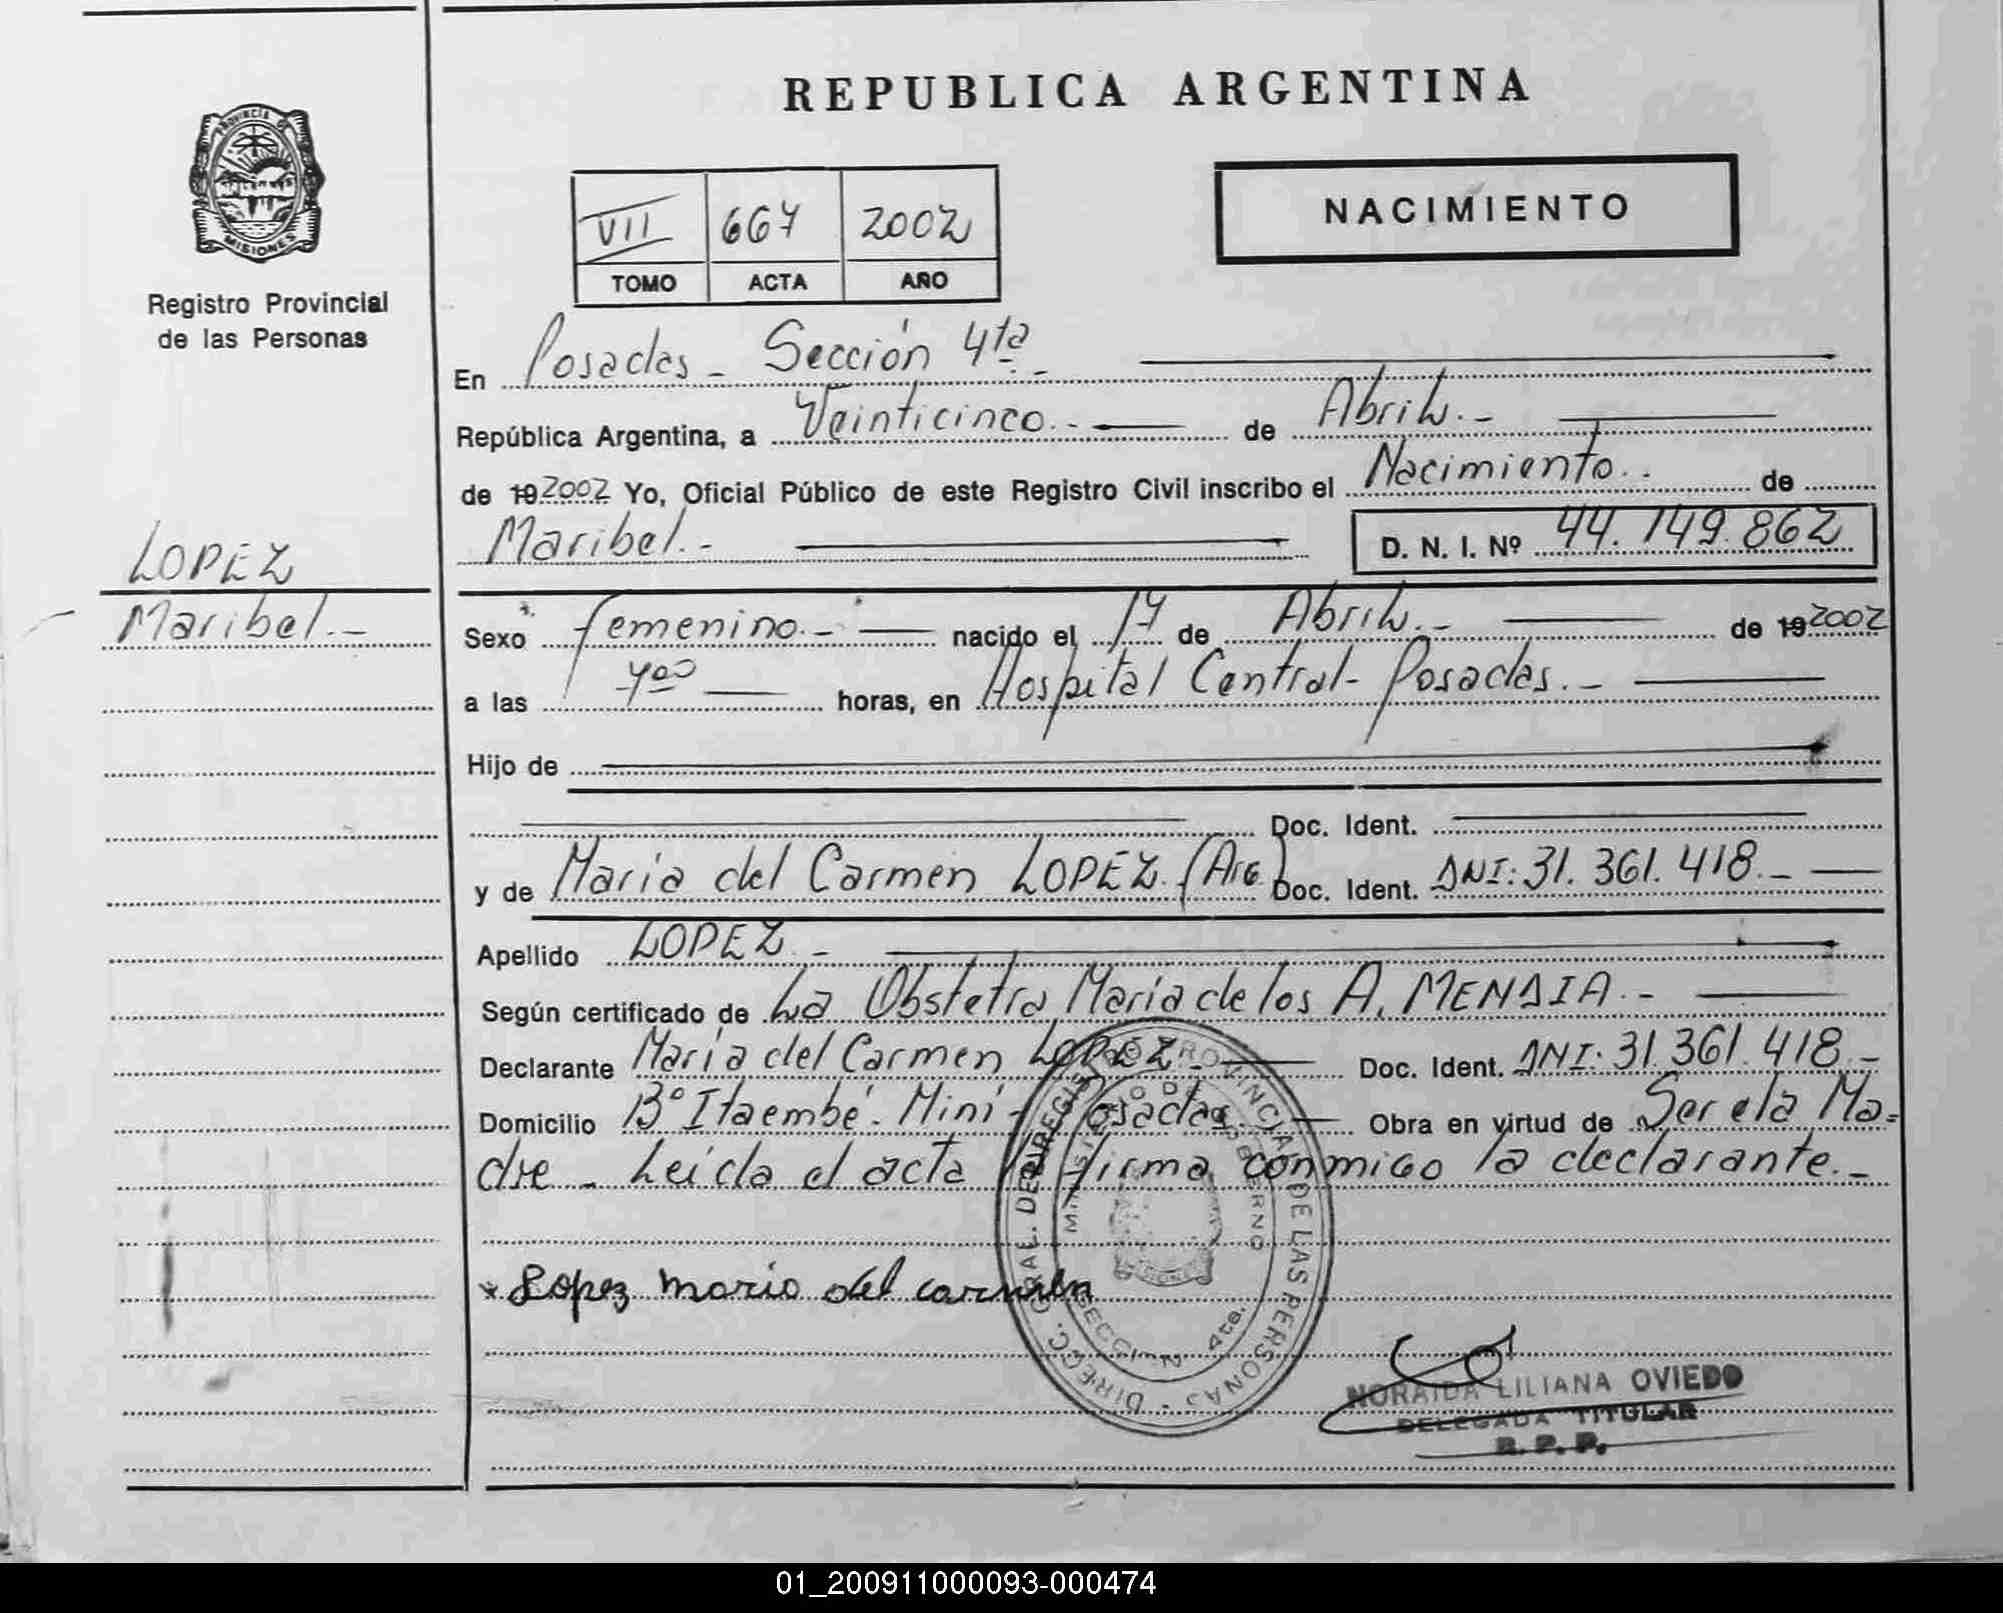 REPUBLICA ARGENTINA
PROVINCIA DE
MISIONES
Registro Provincial
de las Personas
VII 667 2002
TOMO ACTA AÑO
NACIMIENTO
En Posadas - Sección 4ta -
República Argentina, a Veinticinco.- de Abril.-
de 19 2002 Yo, Oficial Público de este Registro Civil inscribo el Nacimiento.. de
Maribel.- D. N. I. Nº 44.149.862
LOPEZ
Maribel.-
Sexo femenino.- nacido el 17 de Abril.- de 19 2002
a las 7 00 horas, en Hospital Central - Posadas.-
Hijo de
Doc. Ident.
y de Maria del Carmen LOPEZ. (Arg) Doc. Ident. DNI: 31.361.418.-
Apellido LOPEZ.-
Según certificado de La Obstetra Maria de los A. MENDIA.-
Declarante Maria del Carmen LOPEZ.- Doc. Ident. DNI: 31.361.418.-
Domicilio Bº Itaembé-Miní- Posadas.- Obra en virtud de Ser ela Ma=
dre - Leida el acta la firma conmigo la declarante.-
Lopez maria del carmen
DIRECC. GRAL. DEL REGISTRO PROVINCIAL DE LAS PERSONAS
MINISTERIO DE GOBIERNO
SECCION 4ta.
NORAIDA LILIANA OVIEDO
DELEGADA TITULAR
R. P. P.
01_200911000093-000474